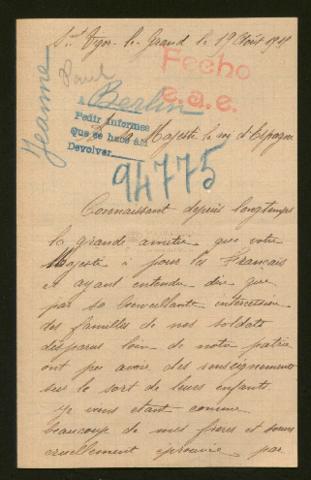 St Cyr le Grand le 19 Août 1918
Fecho
e.a.e.
Jeanne
Paul
A Berlin
Pedir informes
que se hace así
Devolver
a sa Majesté le roi d'Espagne
94775
Connaissant depuis longtemps
la grande amitié que votre
Majesté à pour les Français
et ayant entendu dire que
par sa bienveillante intercession
des familles de nos soldats
disparus loin de notre patrie
ont pu avoir des renseignements
sur le sort de leurs enfants
je vous etant comme
beaucoup de mes frères et sœurs
cruellement eprouvée par